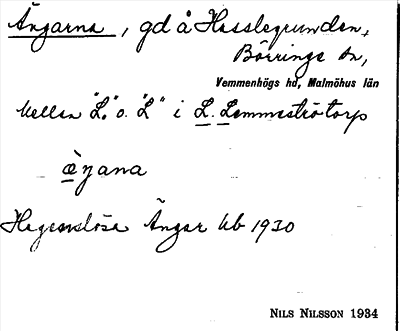 Ängarna, gd å Hasslegrunden,
Börringe sn,
Vemmenhögs hd, Malmöhus län
Mellan "L." o. "L" i L. Lemmeströtorp
æ̀ŋana
Hagestösa Ängar Ub 1930
NILS NILSSON 1934